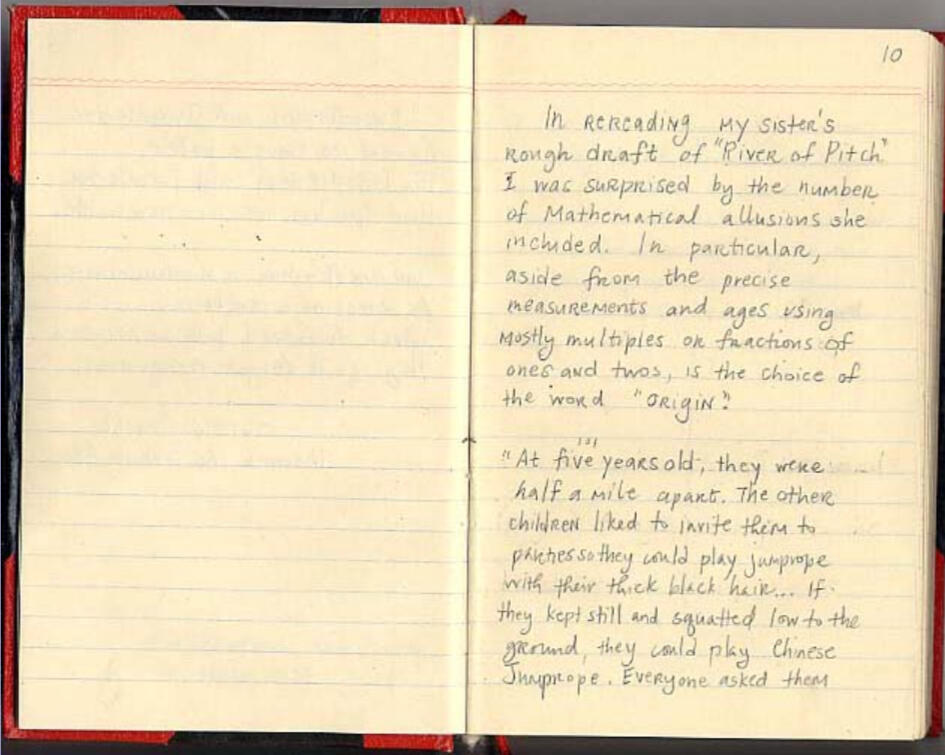 10
In rereading my sister's
rough draft of "River of Pitch"
I was surprised by the number
of Mathematical allusions she
included. In particular,
aside from the precise
measurements and ages using
mostly multiples or fractions of
ones and twos, is the choice of
the word "origin":
"At five years old, they were
half a mile apart. The other
children liked to invite them to
parties so they could play jumprope
with their thick black hair... If
they kept still and squatted low to the
ground, they could play Chinese
Jumprope. Everyone asked them